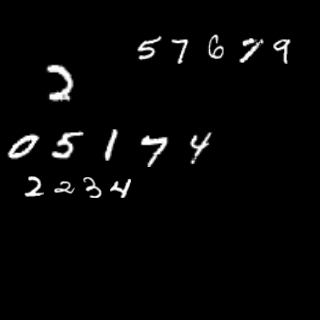 57679
2
05174
2234